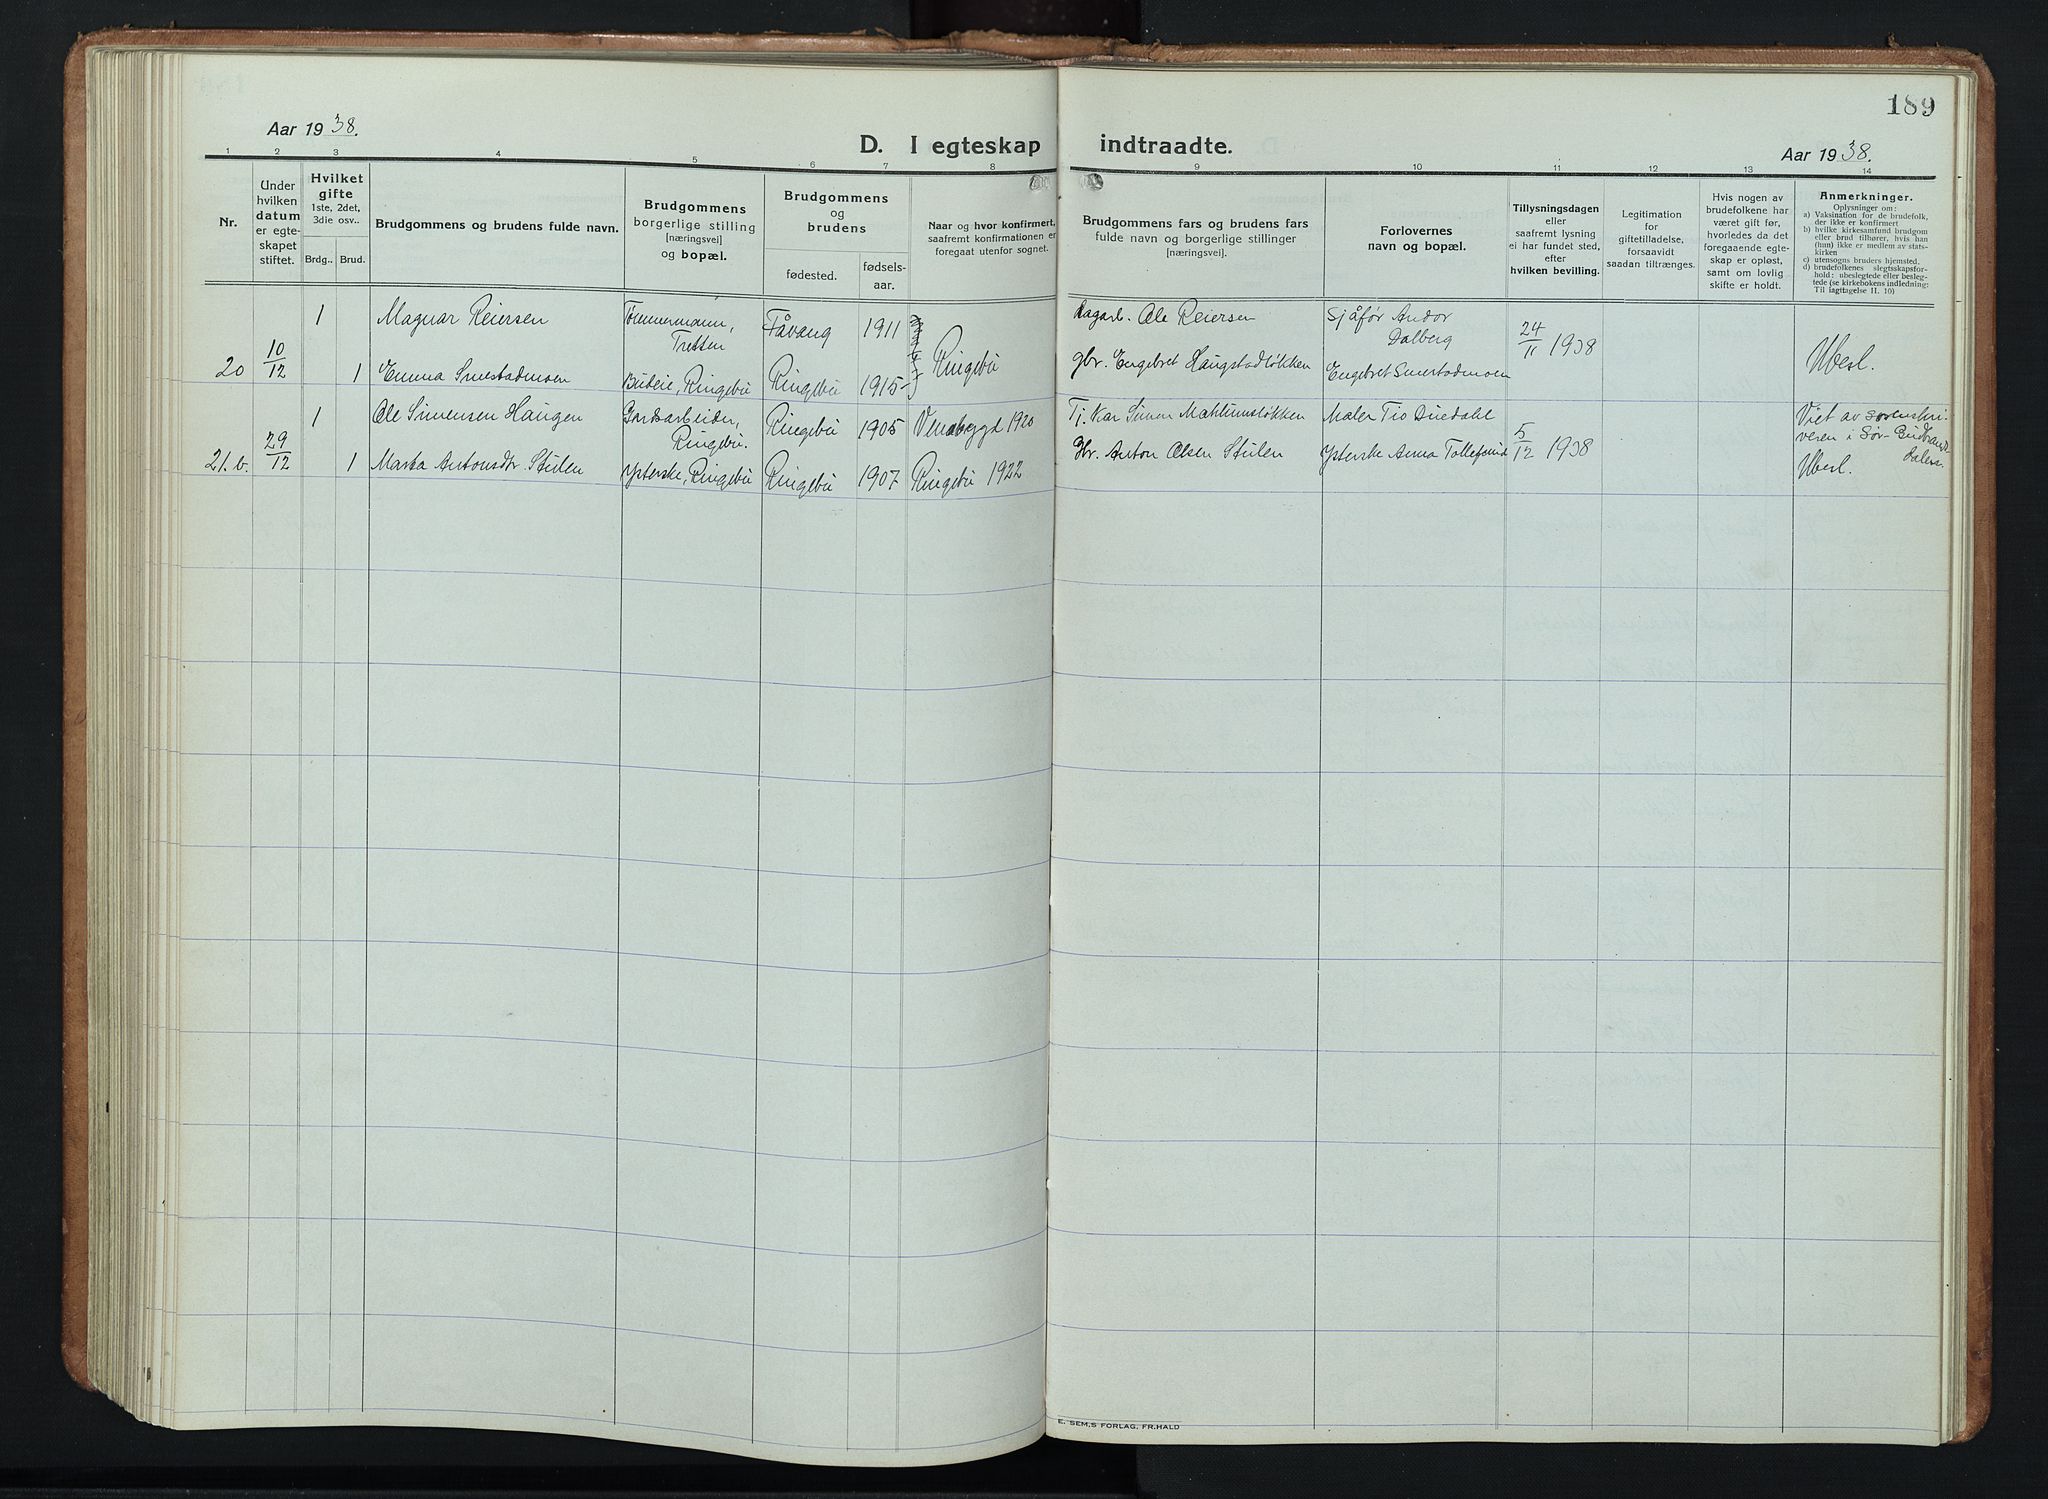 189
Aar 1938.
D. I egteskap indtraadte.
Aar 1938.
1 2 3 4 5 6 7 8 9 10 11 12 13 14
Nr.
Under
hvilken
datum
er egte-
skapet
stiftet.
Hvilket
gifte
1ste, 2det,
3die osv..
Brdg.. Brud.
Brudgommens og brudens fulde navn.
Brudgommens
borgerlige stilling
[næringsvei]
og bopæl.
Brudgommens
og
brudens
fødested.
fødsels-
aar.
Naar og hvor konfirmert,
saafremt konfirmationen er
foregaat utenfor sognet.
Brudgommens fars og brudens fars
fulde navn og borgerlige stillinger
[næringsvei].
Forlovernes
navn og bopæl.
Tillysningsdagen
eller
saafremt lysning
ei har fundet sted,
efter
hvilken bevilling.
Legitimation
for
giftetilladelse,
forsaavidt
saadan tiltrænges.
Hvis nogen av
brudefolkene har
været gift før,
hvorledes da det
foregaaende egte-
skap er opløst,
samt om lovlig
skifte er holdt.
Anmerkninger.
Oplysninger om:
a) Vaksination for de brudefolk,
der ikke er konfirmert
b) hvilke kirkesamfund brudgom
eller brud tilhører, hvis han
(hun) ikke er medlem av stats-
kirken
c) utensogns bruders hjemsted.
d) brudefolkenes slegtsskapsfor-
hold: ubeslegtede eller besleg-
tede (se kirkebokens indledning:
Til Iagttagelse II. 10)
20
10/12
1
Magnar Reiersen
Tømmermann,
Tretten
Fåvang
1911
Dagarb. Ole Reiersen
Sjåfør Andor
Dalberg
24/11 1938
1
Emma Smestadmoen
Budeie, Ringebu
Ringebu
1915
Ringebu
gbr. Engebret Haugstadløkken
Engebret Smestadmoen
Ubesl.
21.b.
29/12
1
Ole Simensen Haugen
Gardsarbeider,
Ringebu.
Ringebu
1905
Venabygd 1920
Tj. kar Simen Mahlumsløkken
Maler Tio Duedahl
5/12 1938
Viet av sorenskri-
veren i Sør-Gudbrands-
dalen.
1
Marta Antonsdtr. Stulen
Ysterske, Ringebu
Ringebu
1907
Ringebu 1922
Gbr. Anton Olsen Stulen
Ysterske Anna Tollefsrud
Ubesl.
E. SEM,S FORLAG, FR.HALD